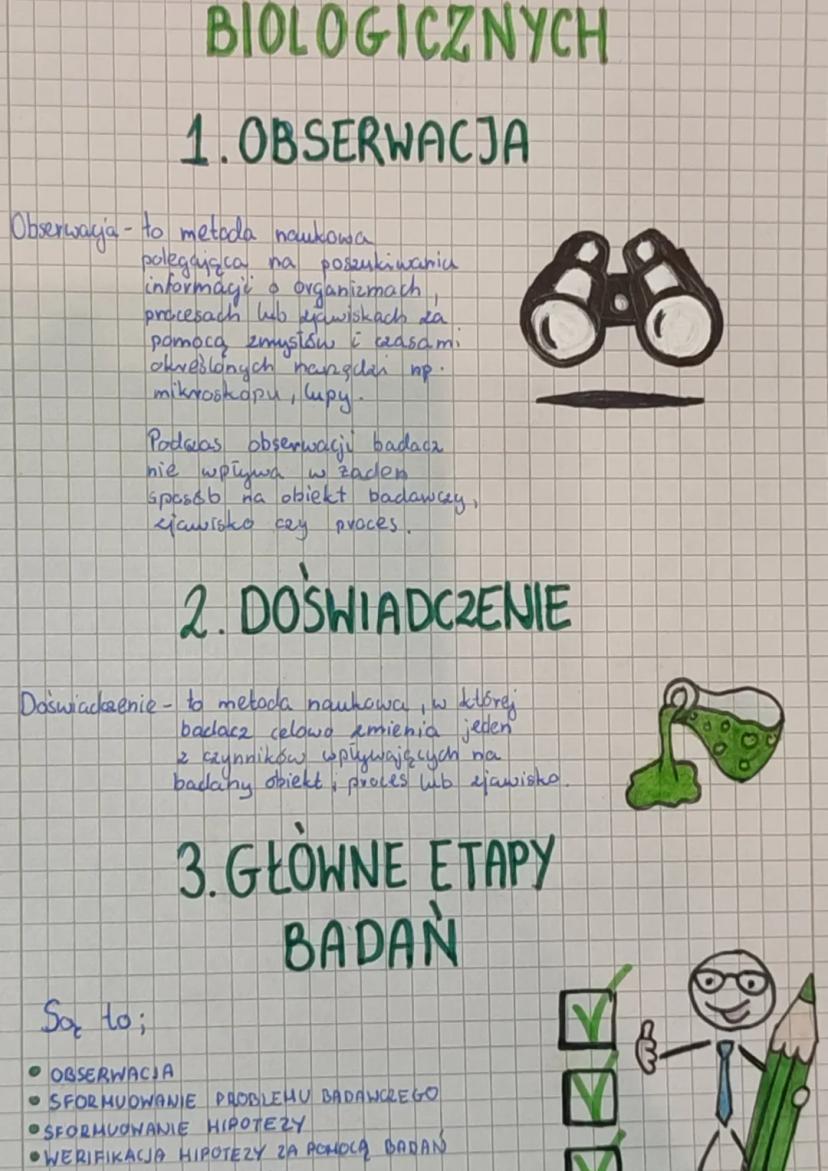 BIOLOGICZNYCH
1. OBSERWACJA
Obserwacja - to metoda naukowa
polegająca na poszukiwaniu
informacji o organizmach,
procesach lub zjawiskach za
pomocą zmysłów i czasami
określonych narzędzi np.
mikroskopu, lupy.
Podczas obserwacji badacz
nie wpływa w żaden
sposób na obiekt badawczy,
zjawisko czy proces.
2. DOŚWIADCZENIE
Doświadczenie - to metoda naukowa, w której
badacz celowo zmienia jeden
z czynników wpływających na
badany obiekt, proces lub zjawisko.
3. GŁÓWNE ETAPY
BADAŃ
Są to;
• OBSERWACJA
• SFORMUOWANIE PROBLEMU BADAWCZEGO
• SFORMUOWANIE HIPOTEZY
• WERIFIKACJA HIPOTEZY ZA POMOCĄ BADAŃ